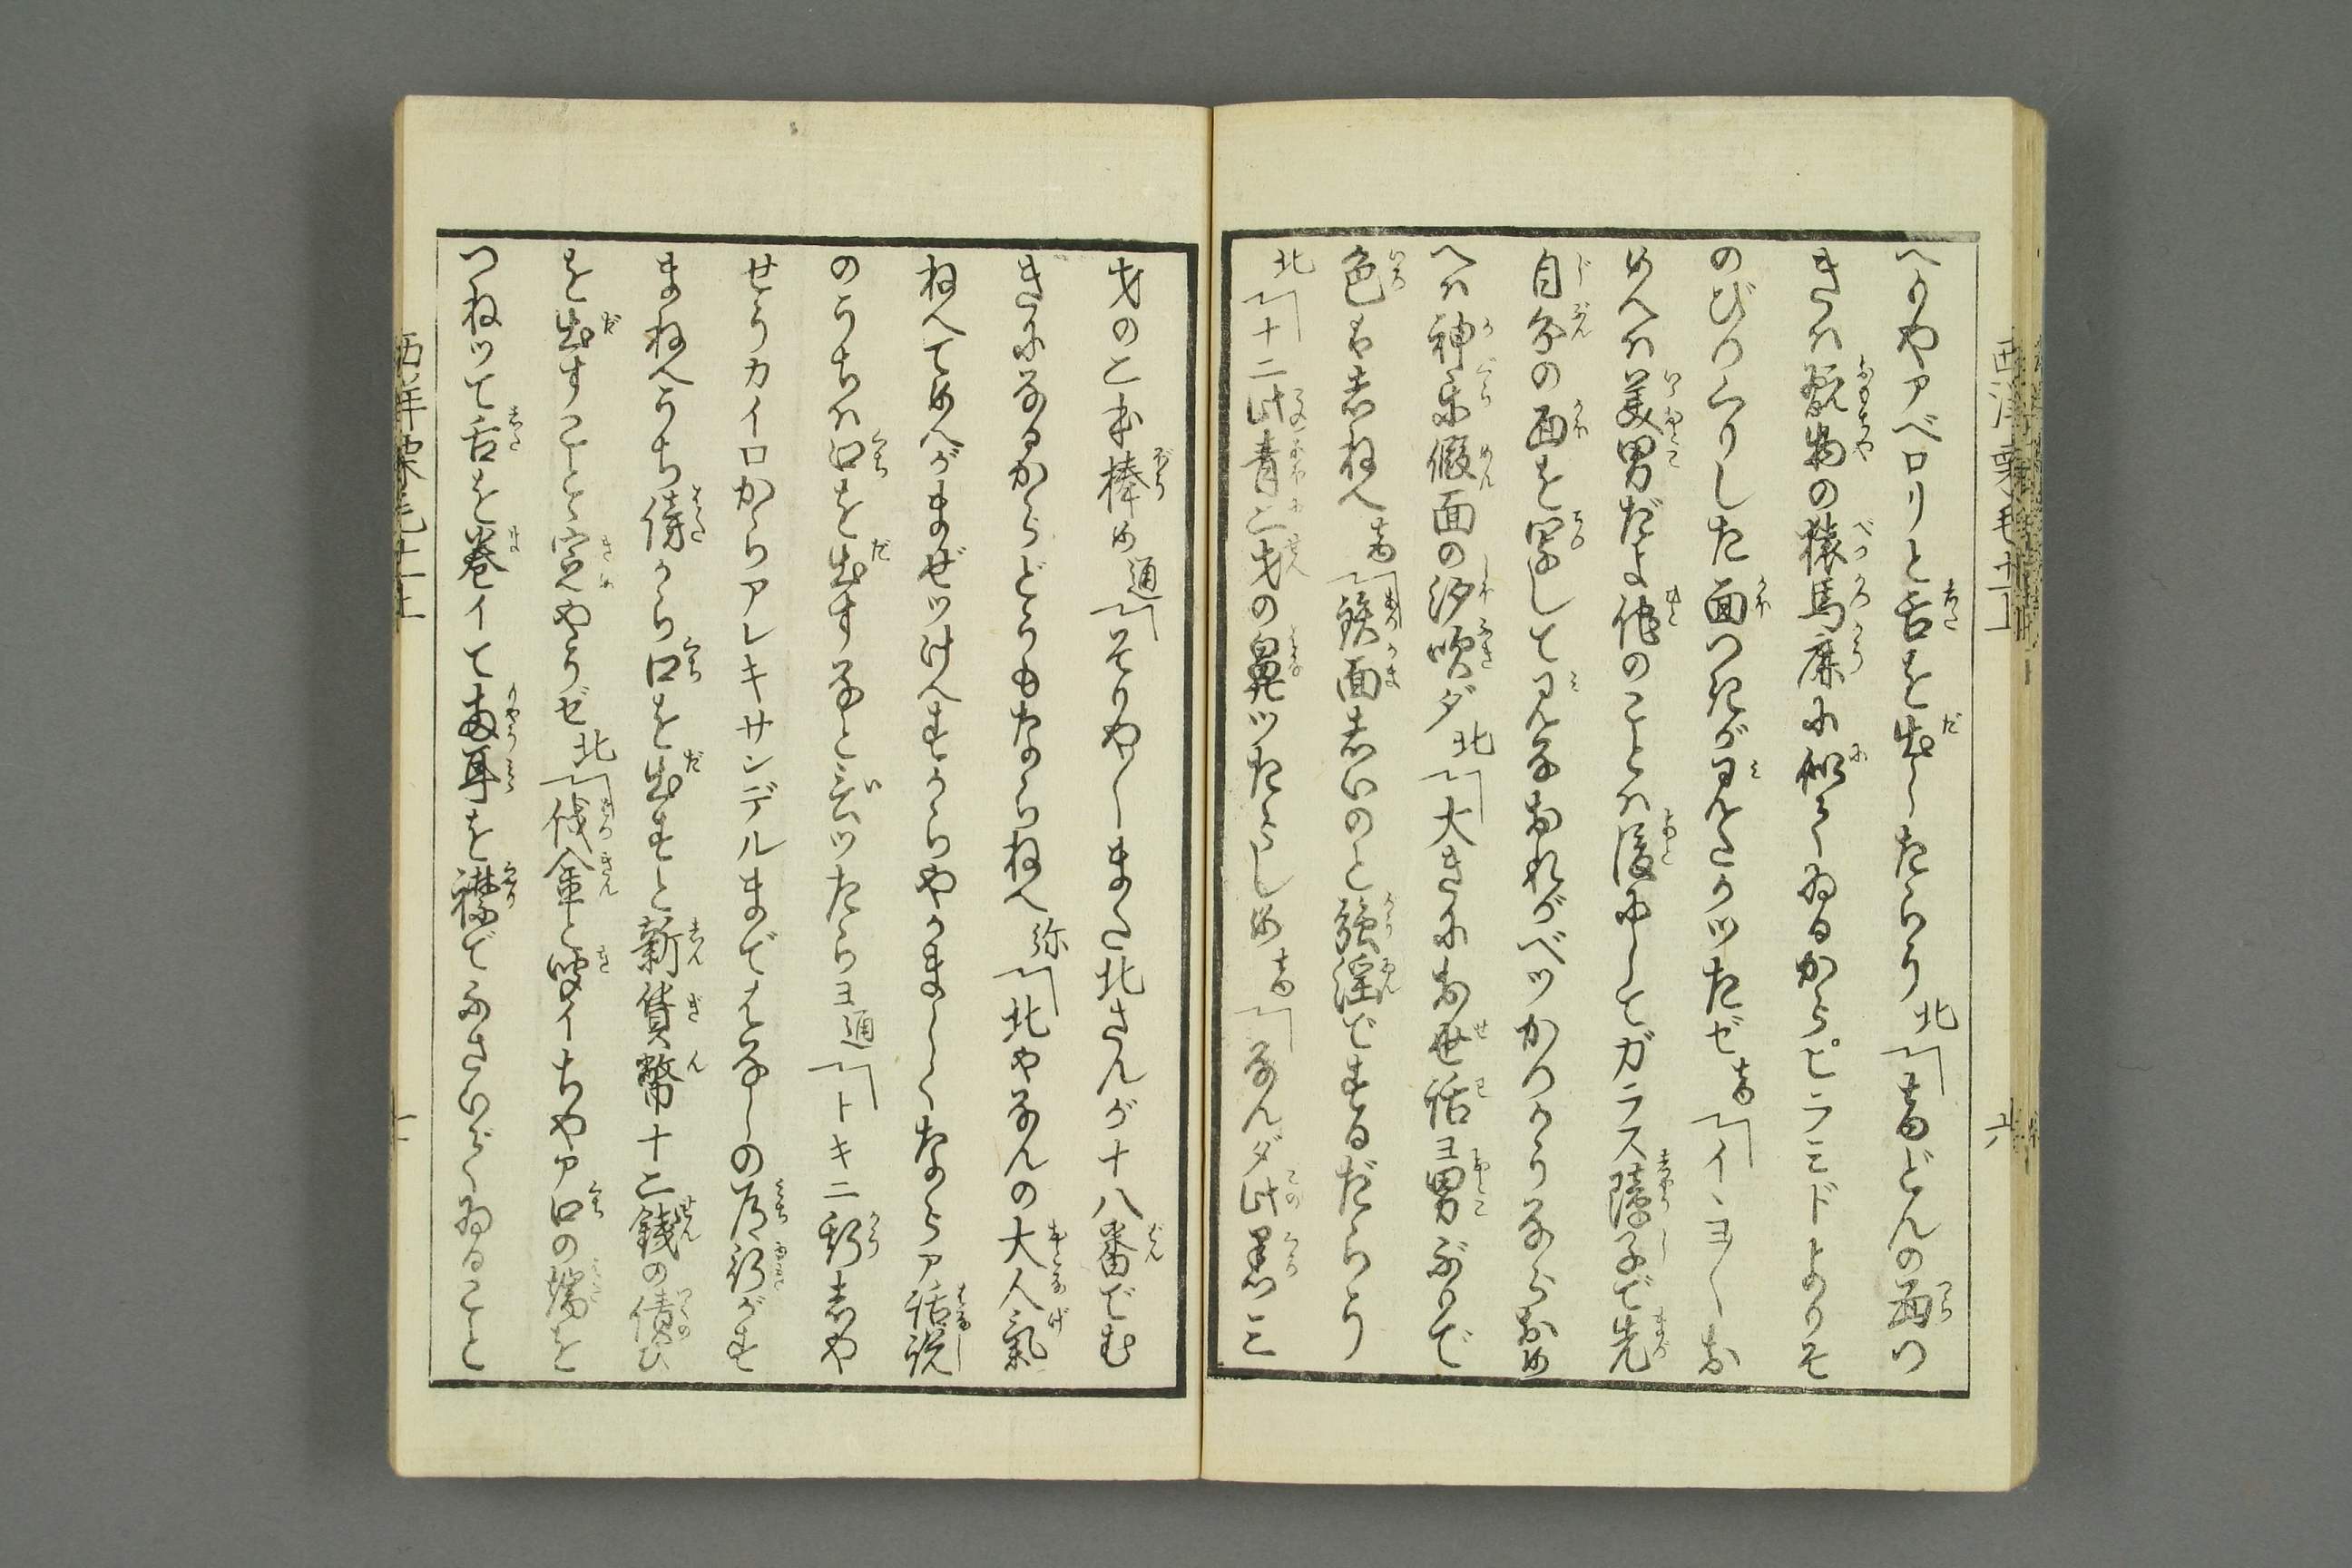 へりやアベロリと舌を出したらう 北「吉どんの面つ
きハ翫物の猿馬鹿に似てゐるからピラミドよりそ
のびつくりした面つきが見たかツたゼ 吉「イヽヨ〳〵お
めへハ美男だよ他のことハ後にしてガラス障子で先
自分の面を写して見なおれがベツかつかうならおめ
へハ神楽仮面の汐吹ダ 北「大きにお世話ヨ男ぶりで
色ハしねへ 吉「鉄面しいのと強淫でするだらう
北「十二此青二才の鼻ツたらしめ 吉「なんダ此黒三
才のこ本棒め 通「そりや〳〵また北さんが十八番でむ
きになるからどうもならねへ 弥「北やなんの大人気
ねへてめへがまぜツけへすからやかましくならア話説
のうちハ口を出すなと言ツたらヨ 通「トキニ斯しや
せうカイロからアレキサンデルまではなしの道行がす
まねへうち傍から口を出すと新貨幣十二銭の償ひ
を出すことゝ定やうゼ 北「伐金と聞イちやア口の端を
つねツて舌を巻イて両耳を襟でふさいでゐること
西洋栗毛十二上